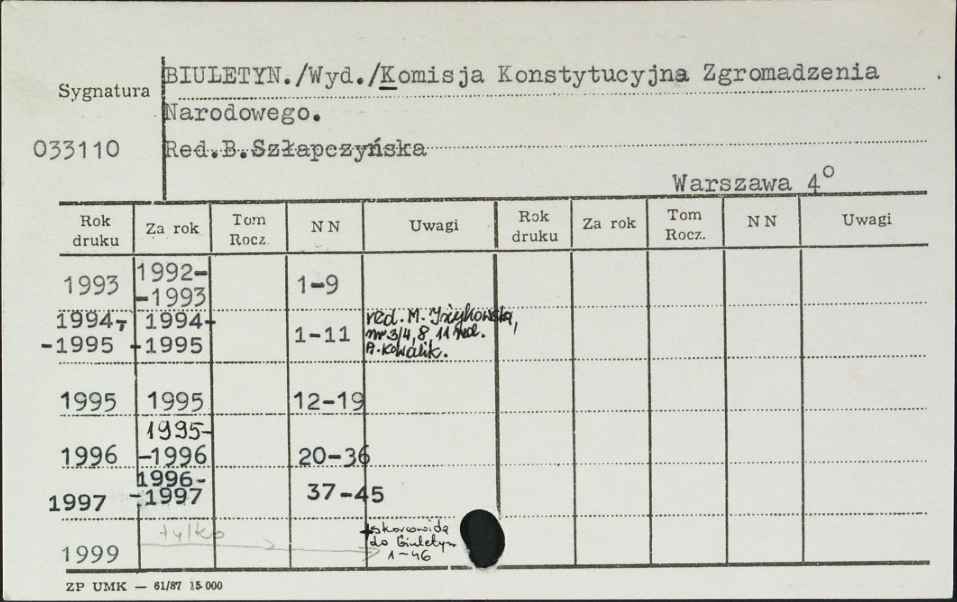 BIULETYN./Wyd./Komisja Konstytucyjna Zgromadzenia
Sygnatura
Narodowego.
033110 Red.B.Szłapczyńska
Warszawa 4°
Rok druku Za rok Tom Rocz. NN Uwagi Rok druku Za rok Tom Rocz. NN Uwagi
1993 1992-
-1993 1-9
1994,-
-1995 1994-
-1995 1-11 red. M. Irzykowska,
nr 3/4, 8, 11 red.
A. Kowalik.
1995 1995 12-19
1996 1995-
-1996 20-36
1997 1996-
-1997 37-45
1999 tylko +skorowidz
do Biuletyn
1-46
ZP UMK — 61/87 15.000